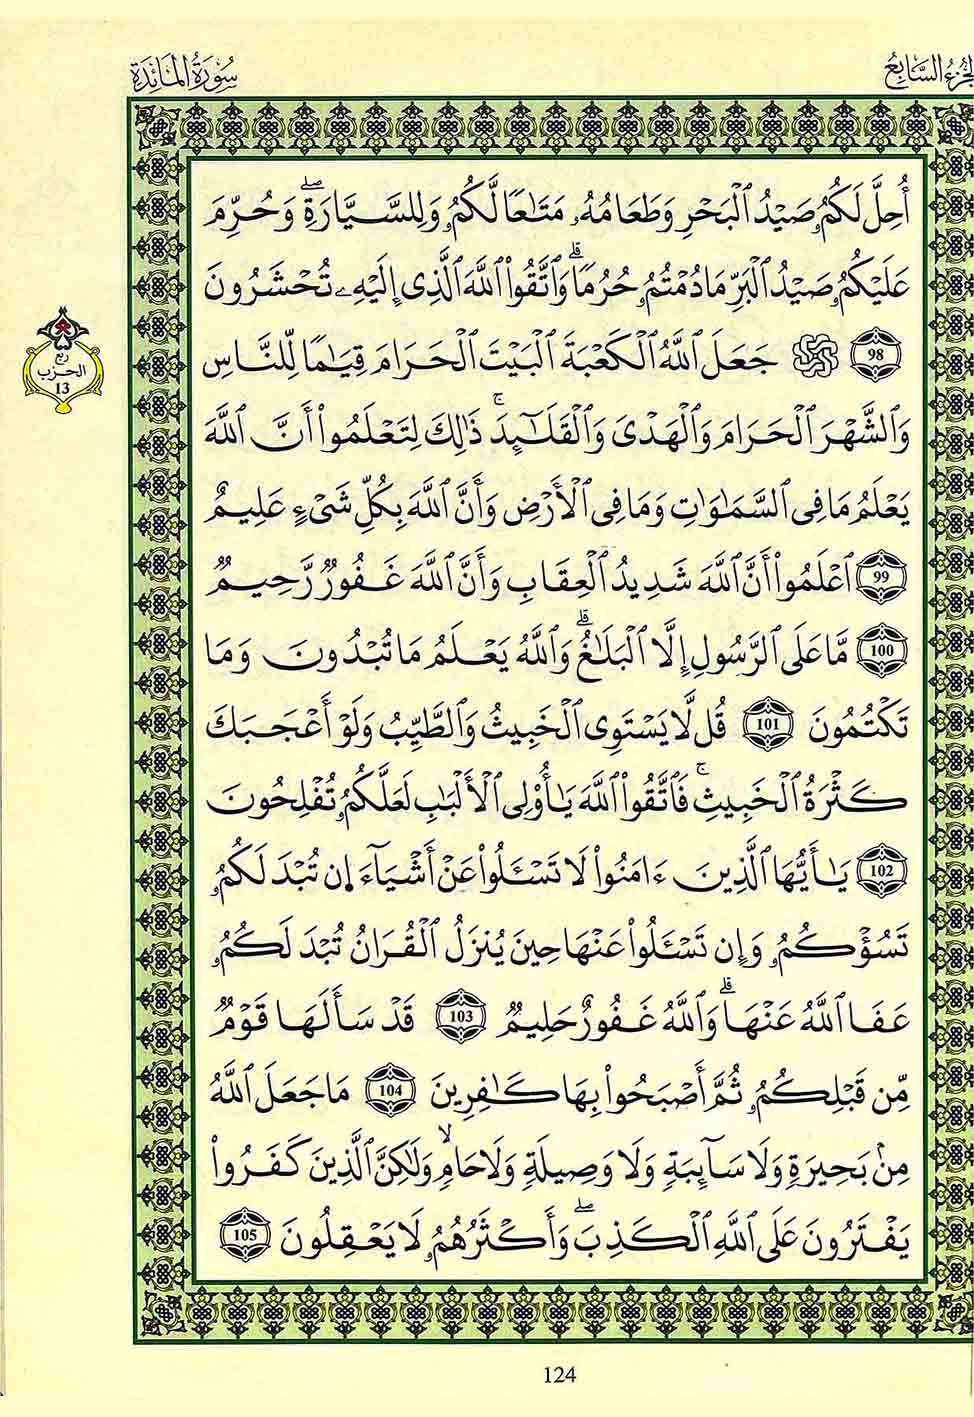 الجزء السابع
سُورَةُ المَائِدَة
أُحِلَّ لَكُمُۥ صَيْدُ اُ۬لْبَحْرِ وَطَعَامُهُۥ مَتَٰعاً لَّكُمُۥ وَلِلسَّيَّارَةِۖ وَحُرِّمَ
عَلَيْكُمُۥ صَيْدُ اُ۬لْبَرِّ مَا دُمْتُمُۥ حُرُماًۗ وَاَتَّقُواْ اُ۬للَّهَ اَ۬لَّذِى إِلَيْهِۦ تُحْشَرُونَ
98 جَعَلَ اَ۬للَّهُ اُ۬لْكَعْبَةَ اَ۬لْبَيْتَ اَ۬لْحَرَامَ قِيَٰماً لِّلنَّاسِ
وَالشَّهْرَ اَ۬لْحَرَامَ وَالْهَدْىَ وَالْقَلَٰٓئِدَۚ ذَٰلِكَ لِتَعْلَمُواْ أَنَّ اَ۬للَّهَ
يَعْلَمُ مَا فِى اِ۬لسَّمَٰوَٰتِ وَمَا فِى اِ۬لْأَرْضِ وَأَنَّ اَ۬للَّهَ بِكُلِّ شَىْءٍ عَلِيمٌ
99 اَ۪عْلَمُواْ أَنَّ اَ۬للَّهَ شَدِيدُ اُ۬لْعِقَابِ وَأَنَّ اَ۬للَّهَ غَفُورٌ رَّحِيمٌ
100 مَّا عَلَى اَ۬لرَّسُولِ إِلَّا اَ۬لْبَلَٰغُۗ وَاللَّهُ يَعْلَمُ مَا تُبْدُونَ وَمَا
تَكْتُمُونَ 101 قُل لَّا يَسْتَوِى اِ۬لْخَبِيثُ وَالطَّيِّبُ وَلَوْ أَعْجَبَكَ
كَثْرَةُ اُ۬لْخَبِيثِۚ فَاتَّقُواْ اُ۬للَّهَ يَٰأُوْلِى اِ۬لْأَلْبَٰبِ لَعَلَّكُمُۥ تُفْلِحُونَ
102 يَٰأَيُّهَا اَ۬لَّذِينَ ءَامَنُواْ لَا تَسْـَٔلُواْ عَنْ أَشْيَآءَ إِن تُبْدَ لَكُمُۥ
تَسُؤْكُمُۥ وَإِن تَسْـَٔلُواْ عَنْهَا حِينَ يُنزَلُ اُ۬لْقُرَانُ تُبْدَ لَكُمُۥ
عَفَا اَ۬للَّهُ عَنْهَاۗ وَاللَّهُ غَفُورٌ حَلِيمٌ 103 قَدْ سَأَلَهَا قَوْمٌ
مِّن قَبْلِكُمُۥ ثُمَّ أَصْبَحُواْ بِهَا كَٰفِرِينَ 104 مَا جَعَلَ اَ۬للَّهُ
مِنۢ بَحِيرَةٍ وَلَا سَآئِبَةٍ وَلَا وَصِيلَةٍ وَلَا حَامٍۙ وَلَٰكِنَّ اَ۬لَّذِينَ كَفَرُواْ
يَفْتَرُونَ عَلَى اَ۬للَّهِ اِ۬لْكَذِبَۖ وَأَكْثَرُهُمُۥ لَا يَعْقِلُونَ 105
ربع
الحزب
13
124